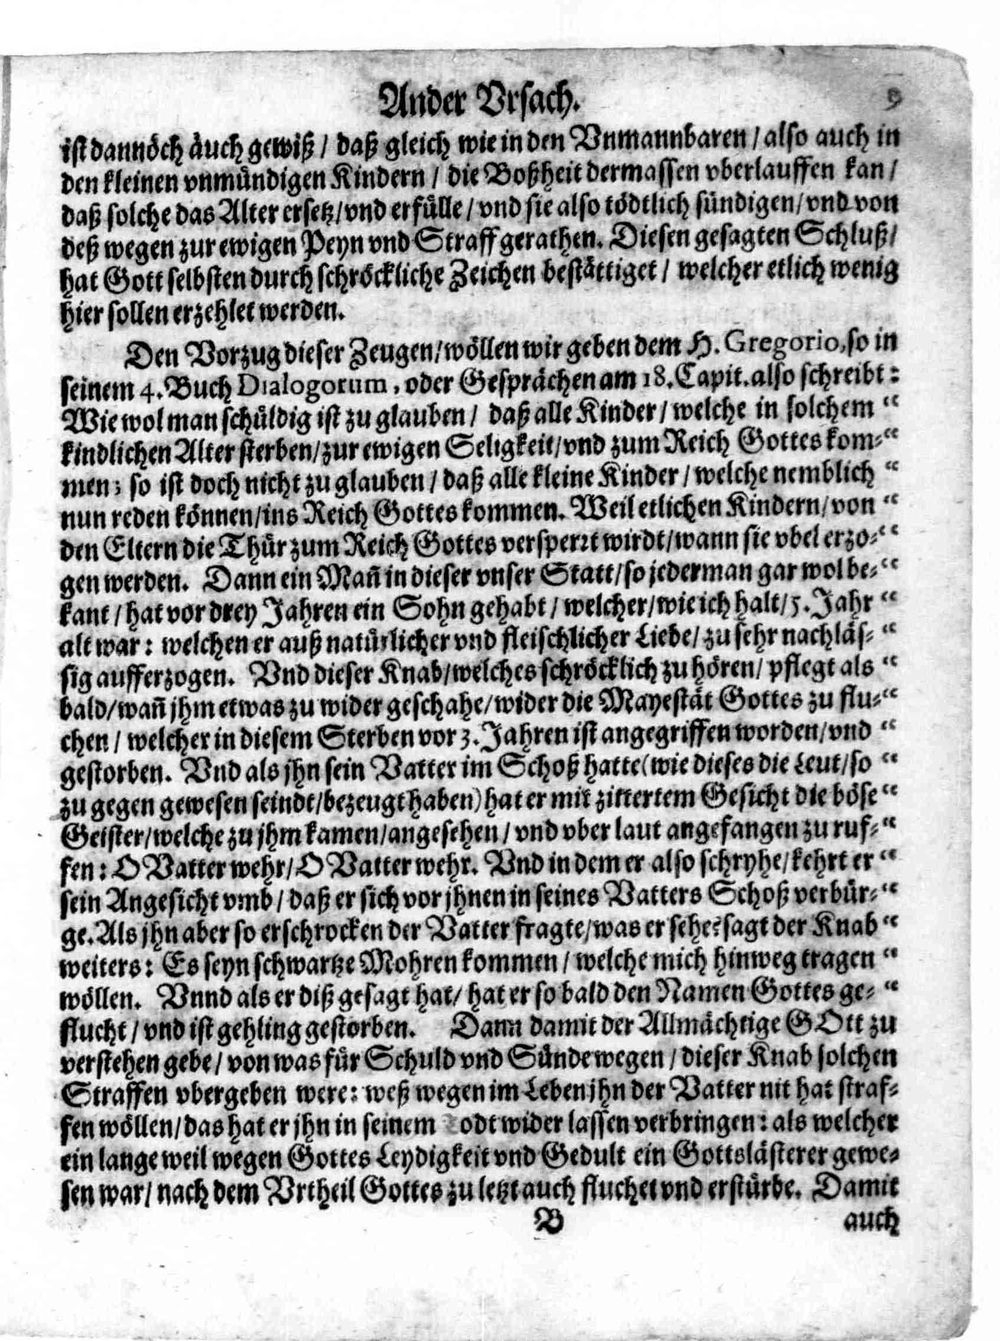 Ander Vrsach. 9
ist dannöch äuch gewiß / daß gleich wie in den Vnmannbaren / also auch in
den kleinen vnmündigen Kindern / die Boßheit dermassen vberlauffen kan /
daß solche das Alter ersetz / vnd erfülle / vnd sie also tödtlich sündigen / vnd von
deß wegen zur ewigen Peyn vnd Straff gerathen. Diesen gesagten Schluß /
hat Gott selbsten durch schröckliche Zeichen bestättiget / welcher etlich wenig
hier sollen erzehlet werden.
Den Vorzug dieser Zeugen / wöllen wir geben dem H. Gregorio, so in
seinem 4. Buch Dialogorum, oder Gesprächen am 18. Capit. also schreibt:
Wie wol man schüldig ist zu glauben / daß alle Kinder / welche in solchem “
kindlichen Alter sterben / zur ewigen Seligkeit / vnd zum Reich Gottes kom⸗ “
men; so ist doch nicht zu glauben / daß alle kleine Kinder / welche nemblich “
nun reden können / ins Reich Gottes kommen. Weil etlichen Kindern / von “
den Eltern die Thür zum Reich Gottes versperꝛt wirdt / wann sie vbel erzo⸗ “
gen werden. Dann ein Mañ in dieser vnser Statt / so jederman gar wol be⸗ “
kant / hat vor drey Jahren ein Sohn gehabt / welcher / wie ich halt / 5. Jahr “
alt war: welchen er auß natürlicher vnd fleischlicher Liebe / zu sehr nachläs⸗ “
sig aufferzogen. Vnd dieser Knab / welches schröcklich zu hören / pflegt als “
bald / wañ jhm etwas zu wider geschahe / wider die Mayestät Gottes zu flu⸗ “
chen / welcher in diesem Sterben vor 3. Jahren ist angegriffen worden / vnd “
gestorben. Vnd als jhn sein Vatter im Schoß hatte (wie dieses die Leut / so “
zu gegen gewesen seindt / bezeugt haben) hat er mit zittertem Gesicht die böse “
Geister / welche zu jhm kamen / angesehen / vnd vber laut angefangen zu ruf⸗ “
fen: O Vatter wehr / O Vatter wehr. Vnd in dem er also schryhe / kehrt er “
sein Angesicht vmb / daß er sich vor jhnen in seines Vatters Schoß verbür⸗ “
ge. Als jhn aber so erschrocken der Vatter fragte / was er sehe? sagt der Knab “
weiters: Es seyn schwartze Mohren kommen / welche mich hinweg tragen “
wöllen. Vnnd als er diß gesagt hat / hat er so bald den Namen Gottes ge⸗ “
flucht / vnd ist gehling gestorben. Dann damit der Allmächtige GOtt zu
verstehen gebe / von was für Schuld vnd Sünde wegen / dieser Knab solchen
Straffen vbergeben were: weß wegen im Leben jhn der Vatter nit hat straf⸗
fen wöllen / das hat er jhn in seinem Todt wider lassen verbringen: als welcher
ein lange weil wegen Gottes Leydigkeit vnd Gedult ein Gottslästerer gewe⸗
sen war / nach dem Vrtheil Gottes zu letzt auch fluchet vnd erstürbe. Damit
B auch